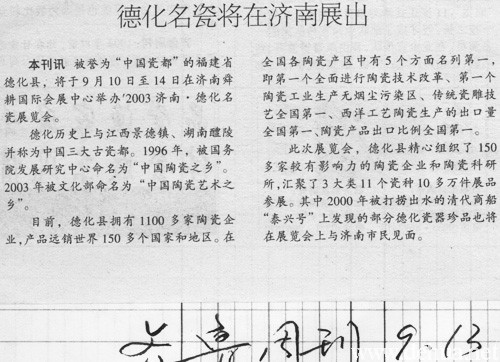 德化名瓷将在济南展出
本刊讯 被誉为“中国瓷都”的福建省
德化县，将于9月10日至14日在济南舜
耕国际会展中心举办'2003济南·德化名
瓷展览会。
德化历史上与江西景德镇、湖南醴陵
并称为中国三大古瓷都。1996年，被国务
院发展研究中心命名为“中国陶瓷之乡”。
2003年被文化部命名为“中国陶瓷艺术之
乡”。
目前，德化县拥有1100多家陶瓷企
业，产品远销世界150多个国家和地区。在
全国各陶瓷产区中有5个方面名列第一，
即第一个全面进行陶瓷技术改革、第一个
陶瓷工业生产无烟尘污染区、传统瓷雕技
艺全国第一、西洋工艺陶瓷生产的出口量
全国第一、陶瓷产品出口比例全国第一。
此次展览会，德化县精心组织了150
多家较有影响力的陶瓷企业和陶瓷科研
所，汇聚了3大类11个瓷种10多万件展品
参展。其中2000年被打捞出水的清代商船
“泰兴号”上发现的部分德化瓷器珍品也将
在展览会上与济南市民见面。
周刊 9.13